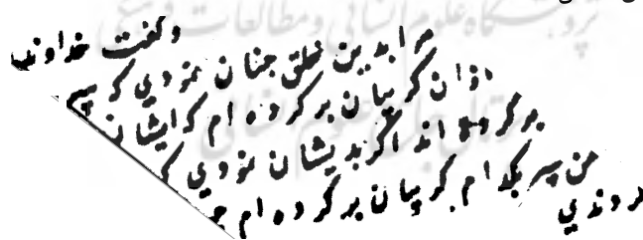 پژوهشگاه علوم انسانی و مطالعات فرهنگی
پرتال جامع علوم انسانی
وکفت خداوند
مرا بدین خلق جنان نمودي که سر
ازان کریبان برکرده ام که ایشان
برکرده اند اکر بدیشان نمودي که
من سر بکدام کریبان برکرده ام
ردندي